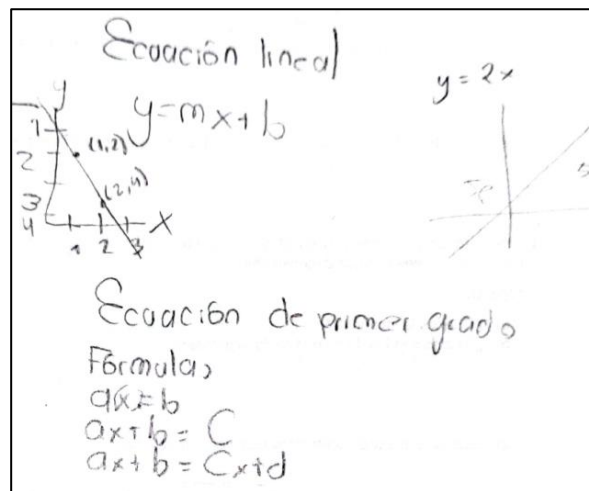 Ecuación lineal
y = 2x
y
y=mx+b
1
(1,2)
2
(2,4)
3
4
x
1 2 3
Ecuación de primer grado
Fórmulas
ax=b
ax+b = C
ax+b = Cx+d